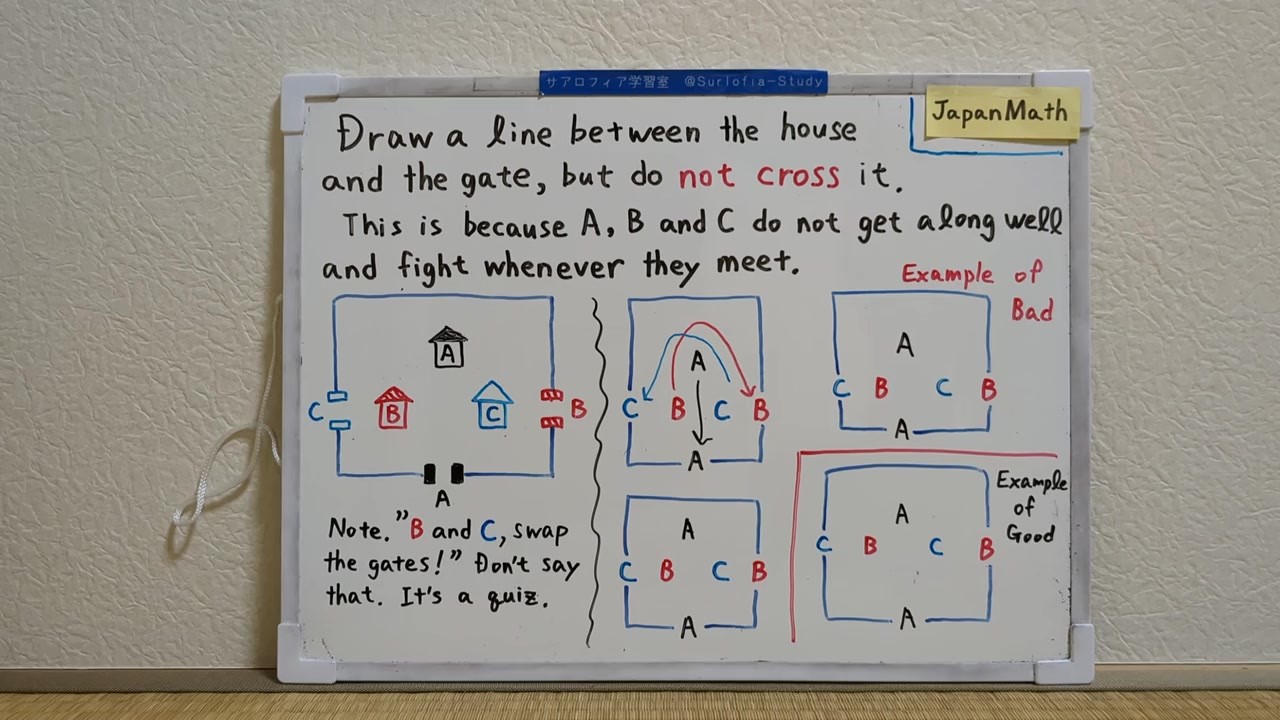 サアロフィア学習室 @Surlofia-Study
JapanMath
Draw a line between the house
and the gate, but do not cross it.
This is because A, B and C do not get along well
and fight whenever they meet.
A
B
C
C
B
A
Note. "B and C, swap
the gates!" Don't say
that. It's a quiz.
A
C B C B
A
A
C B C B
A
Example of
Bad
A
C B C B
A
Example
of
Good
A
C B C B
A